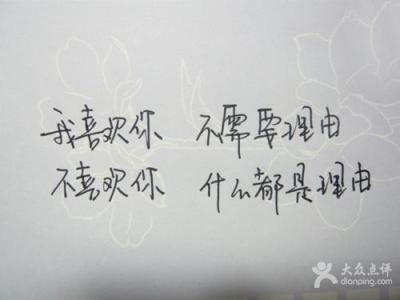 我喜欢你 不需要理由
不喜欢你 什么都是理由
大众点评
dianping.com